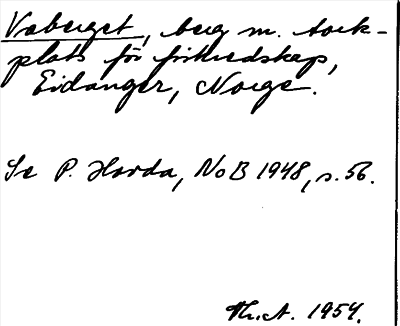 Vaberget, berg m. tork-
plats för fiskredskap,
Eidanger, Norge.
Se P. Hovda, NoB 1948, s. 56.
Th.A. 1954.